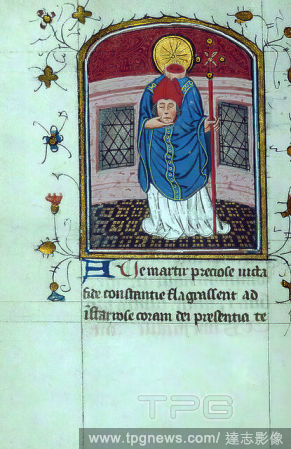 Ave martir preciose victa
fide constantie flagrassent ad
istariose coram dei presentia te
TPG
www.tpgnews.com / 達志影像